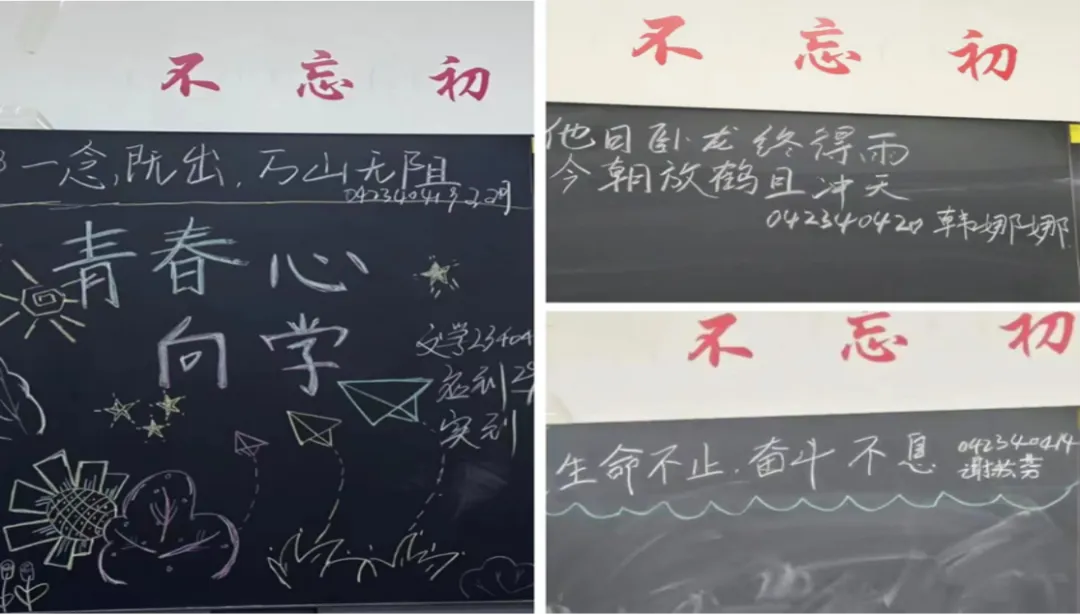 不忘初
一念既出，万山无阻
青春心
向学
文学23404
应到29
实到
不忘初
他日卧龙终得雨
今朝放鹤且冲天
042340420 韩娜娜
不忘初
生命不止，奋斗不息
042340414
谢